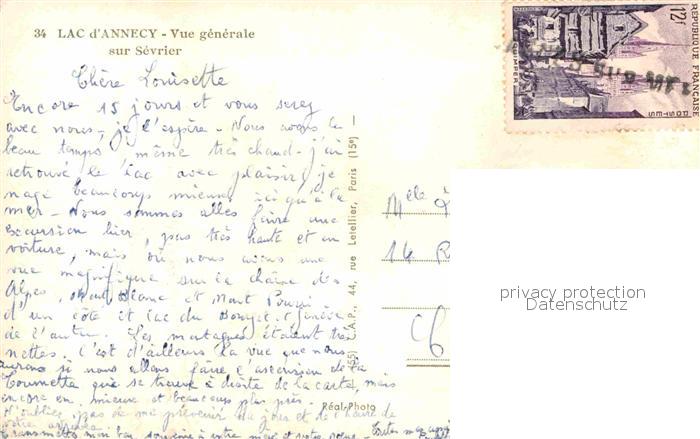 34 LAC d'ANNECY - Vue générale
sur Sévrier
Chère Louisette
Encore 15 jours et vous serez
avec nous, je l'espère - Nous avons le
beau temps, même très chaud - j'ai
retrouvé le lac avec plaisir, je
nage beaucoup mieux ici qu'à la
mer - Nous sommes allés faire une
excursion hier, pas très haute et en
voiture, mais où nous avions une
vue magnifique sur la chaîne des
Alpes, Mont Blanc et Mont
d'un côté et lac du Bourget, Genève
de l'autre. Les montagnes étaient très
nettes. C'est d'ailleurs la vue que nous
aurons si nous allons faire l'ascension de la
Tournette qui se trouve à droite de la carte, mais
encore en mieux et beaucoup plus près.
N'oubliez pas de me prévenir du jour et de l'heure de
votre arrivée.
Transmettez mon bon souvenir à votre mère et
C.A.P., 44, rue Letellier, Paris (15e)
Réal-Photo
Melle
14 R
RÉPUBLIQUE FRANÇAISE
12f
QUIMPER
POSTES
privacy protection
Datenschutz